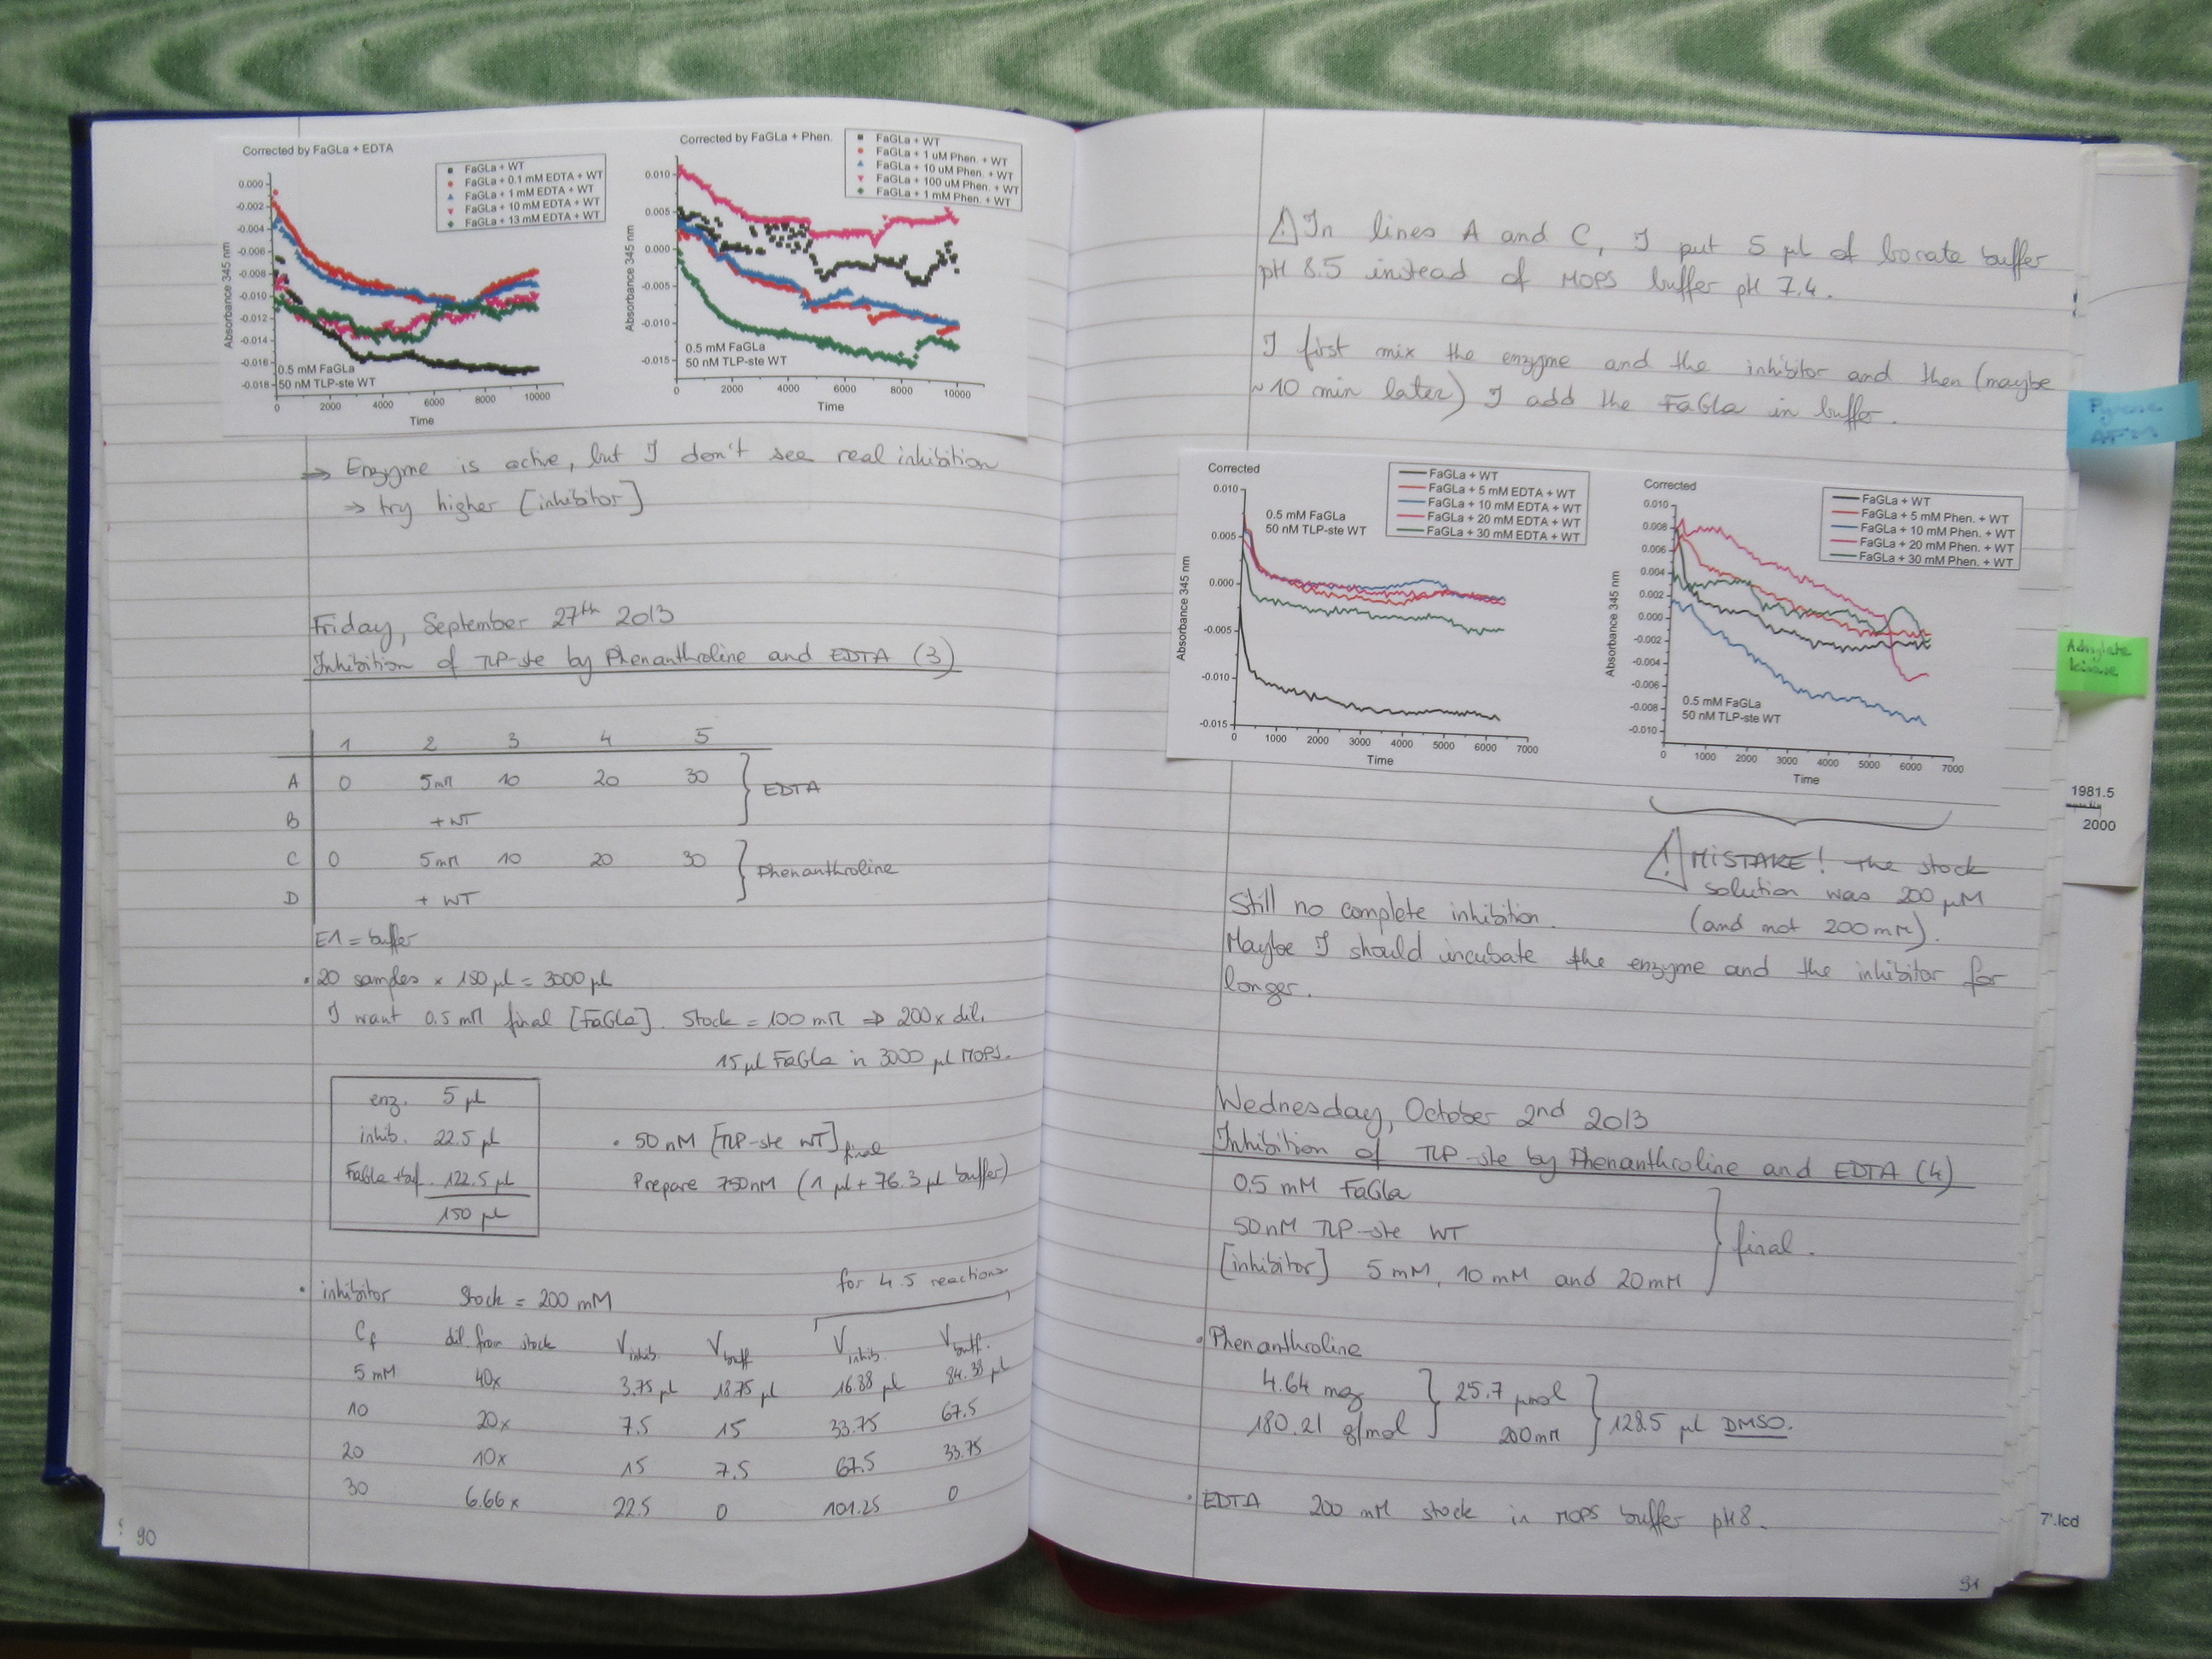 Corrected by FaGLa + EDTA
FaGLa + WT
FaGLa + 0.1 mM EDTA + WT
FaGLa + 1 mM EDTA + WT
FaGLa + 10 mM EDTA + WT
FaGLa + 13 mM EDTA + WT
0.000
-0.002
-0.004
-0.006
-0.008
-0.010
-0.012
-0.014
-0.016
-0.018
Absorbance 345 nm
0.5 mM FaGLa
50 nM TLP-ste WT
0 2000 4000 6000 8000 10000
Time
Corrected by FaGLa + Phen.
FaGLa + WT
FaGLa + 1 uM Phen. + WT
FaGLa + 10 uM Phen. + WT
FaGLa + 100 uM Phen. + WT
FaGLa + 1 mM Phen. + WT
0.010
0.005
0.000
-0.005
-0.010
-0.015
Absorbance 345 nm
0.5 mM FaGLa
50 nM TLP-ste WT
0 2000 4000 6000 8000 10000
Time
⇒ Enzyme is active, but I don't see real inhibition
⇒ try higher [inhibitor]
Friday, September 27th 2013
Inhibition of TLP-ste by Phenanthroline and EDTA (3)
1 2 3 4 5
A 0 5mM 10 20 30
EDTA
B + WT
C 0 5mM 10 20 30
Phenanthroline
D + WT
E1 = buffer
• 20 samples × 150 µl = 3000 µl
I want 0.5 mM final [FaGLa]. Stock = 100 mM ⇒ 200x dil.
15 µl FaGLa in 3000 µl MOPS.
enz. 5 µl
inhib. 22.5 µl
FaGLa + buf. 122.5 µl
150 µl
• 50 nM [TLP-ste WT] final
Prepare 750nM (1 µl + 76.3 µl buffer)
• inhibitor Stock = 200 mM
for 4.5 reactions
Cf dil. from stock Vinhib. Vbuff Vinhib. Vbuff.
5 mM 40x 3.75 µl 18.75 µl 16.88 µl 84.38 µl
10 20x 7.5 15 33.75 67.5
20 10x 15 7.5 67.5 33.75
30 6.66x 22.5 0 101.25 0
90
⚠ In lines A and C, I put 5 µl of borate buffer
pH 8.5 instead of MOPS buffer pH 7.4.
I first mix the enzyme and the inhibitor and then (maybe
~10 min later) I add the FaGLa in buffer.
Corrected
FaGLa + WT
FaGLa + 5 mM EDTA + WT
FaGLa + 10 mM EDTA + WT
FaGLa + 20 mM EDTA + WT
FaGLa + 30 mM EDTA + WT
0.010
0.005
0.000
-0.005
-0.010
-0.015
Absorbance 345 nm
0.5 mM FaGLa
50 nM TLP-ste WT
0 1000 2000 3000 4000 5000 6000 7000
Time
Corrected
FaGLa + WT
FaGLa + 5 mM Phen. + WT
FaGLa + 10 mM Phen. + WT
FaGLa + 20 mM Phen. + WT
FaGLa + 30 mM Phen. + WT
0.010
0.008
0.006
0.004
0.002
0.000
-0.002
-0.004
-0.006
-0.008
-0.010
Absorbance 345 nm
0.5 mM FaGLa
50 nM TLP-ste WT
0 1000 2000 3000 4000 5000 6000 7000
Time
⚠ MISTAKE! The stock
solution was 200 µM
(and not 200mM).
Still no complete inhibition.
Maybe I should incubate the enzyme and the inhibitor for
longer.
Wednesday, October 2nd 2013
Inhibition of TLP-ste by Phenanthroline and EDTA (4)
0.5 mM FaGLa
50 nM TLP-ste WT
[inhibitor] 5 mM, 10 mM and 20mM
final.
• Phenanthroline
4.64 mg
180.21 g/mol
25.7 µmol
200mM
128.5 µl DMSO.
• EDTA 200 mM stock in MOPS buffer pH8.
91
Adenylate
kinase
1981.5
2000
7'.lcd